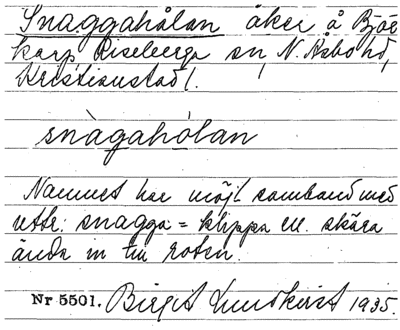 Snaggahålan åker å Björ
karp Riseberga sn, N. Åsbo hd,
Kristianstad l.
snàgahólan
Namnet har möjl. samband med
uttr. snagga = klippa ell. skära
ända in till roten.
Nr 5501. Birgit Lundkvist 1935.